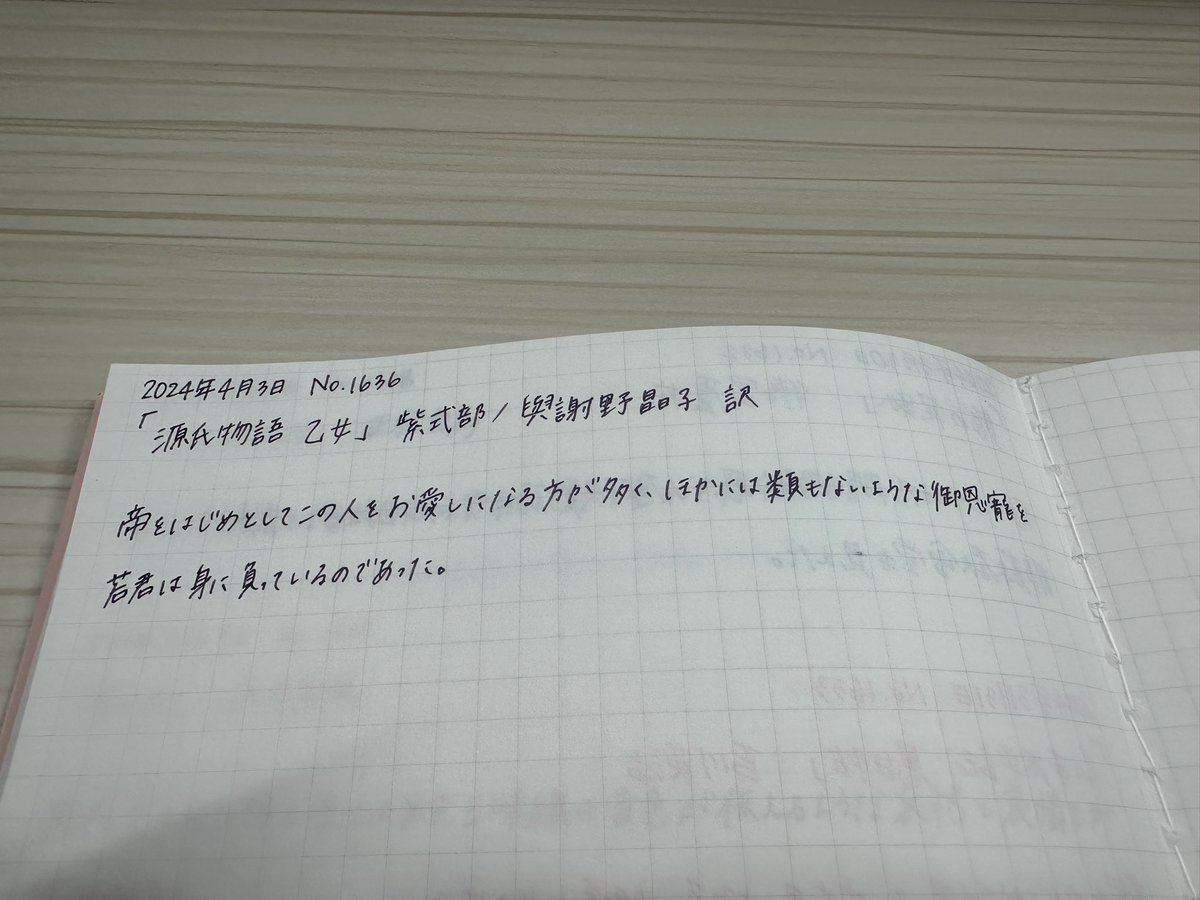 2024年4月3日 No.1636
「源氏物語 乙女」 紫式部/與謝野晶子 訳
帝をはじめとしてこの人をお愛しになる方が多く、ほかには類もないような御恩寵を
若君は身に負っているのであった。